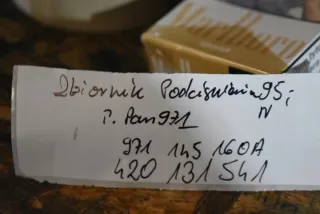 Marlboro
Zbiornik Podciśnienia 95;
N
P. Pan 971
971 145 160A
420 131 541